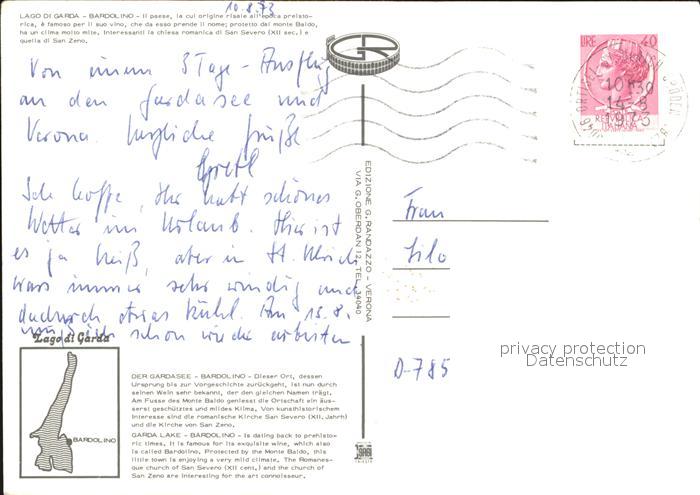 10.8.73
LAGO DI GARDA - BARDOLINO - Il paese, la cui origine risale all'epoca preisto-
rica, è famoso per il suo vino, che da esso prende il nome; protetto dal monte Baldo,
ha un clima molto mite. Interessanti la chiesa romanica di San Severo (XII sec.) e
quella di San Zeno.
Von einem 3 Tage-Ausflug
an den Gardasee und
Verona herzliche Grüße
Gretl
Ich hoffe, Ihr habt schönes
Wetter im Urlaub. Hier ist
es ja heiß, aber in St. Ulrich
wars immer sehr windig und
dadurch etwas kühl. Am 15.8.
muß ich schon wieder arbeiten
Lago di Garda
BARDOLINO
DER GARDASEE - BARDOLINO - Dieser Ort, dessen
Ursprung bis zur Vorgeschichte zurückgeht, ist nun durch
seinen Wein sehr bekannt, der den gleichen Namen trägt.
Am Fusse des Monte Baldo geniesst die Ortschaft ein äus-
serst geschütztes und mildes Klima. Von kunsthistorischem
Interesse sind die romanische Kirche San Severo (XII. Jahrh)
und die Kirche von San Zeno.
GARDA LAKE - BARDOLINO - Is dating back to prehisto-
ric times. It is famous for its exquisite wine, which also
is called Bardolino. Protected by the Monte Baldo, this
little town is enjoying a very mild climate. The Romanes-
que church of San Severo (XII cent.) and the church of
San Zeno are interesting for the art connoisseur.
EDIZIONE G. RANDAZZO - VERONA
VIA G. OBERDAN 12, TEL. 34040
GR
LIRE 40
10 30
14-8
1973
Frau
Lilo
D-785
privacy protection
Datenschutz